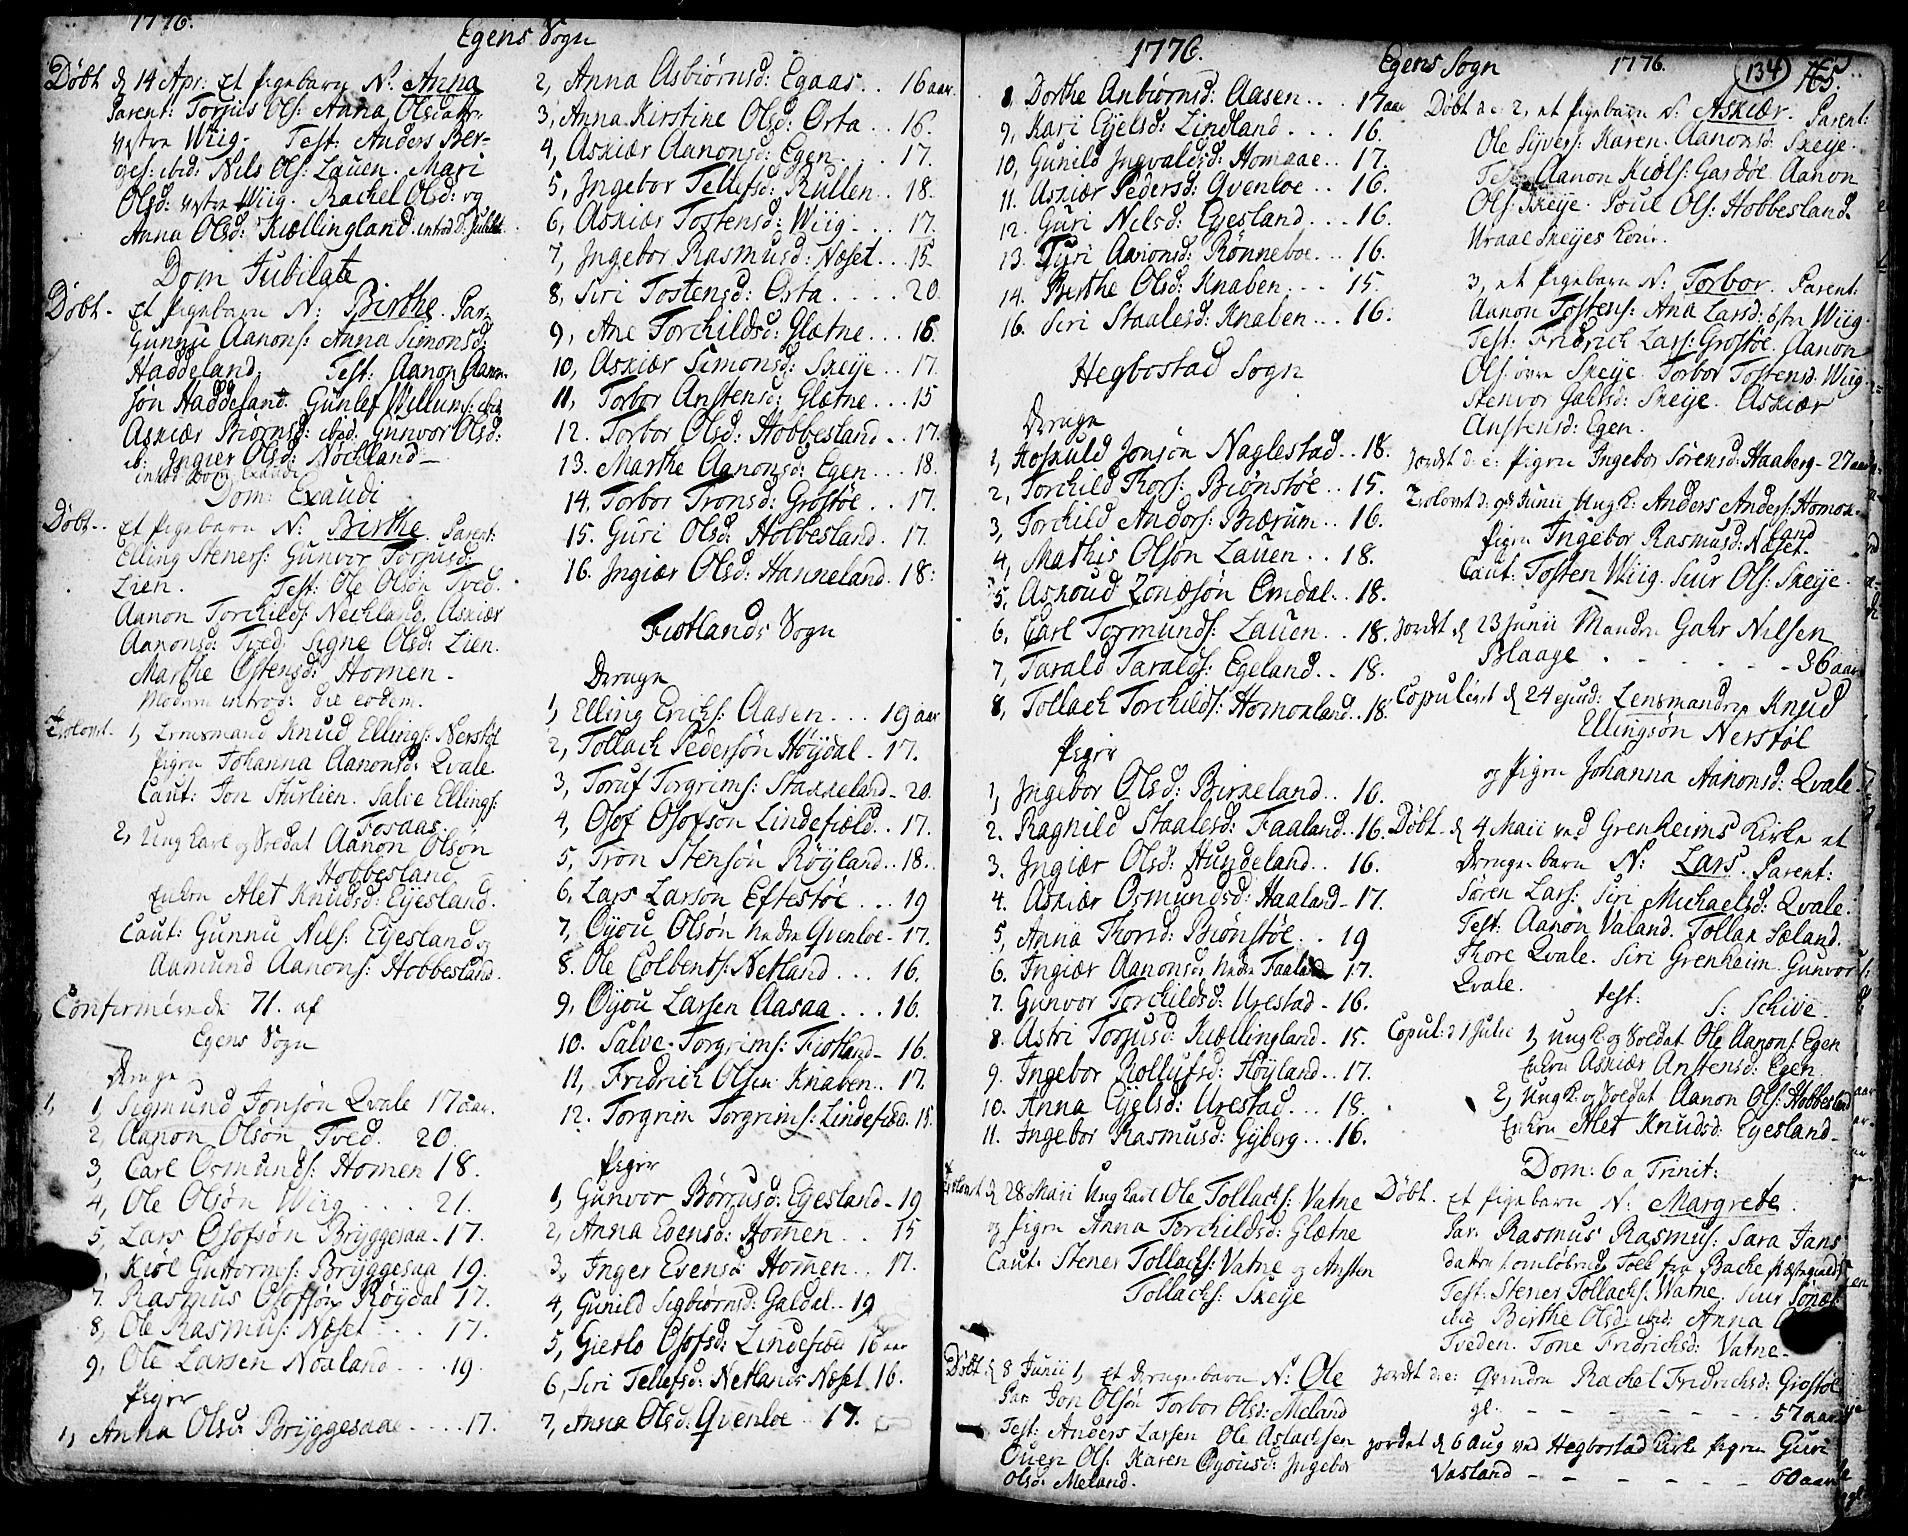 1776.
Egens Sogn
Døbt d 14 Apr: et Pigebarn N: Anna
Parent: Torjus Ols: Anna Olsdattr
vestre Wiig. Test: Anders Ber-
ges: ibid: Nils Ols: Lauen. Mari
Olsd: vestre Wiig. Rachel Olsd: og
Anna Olsd: Kiellingland introd D: Jubilat.
Dom Jubilate
Døbt. et Pigebarn N: Birthe. Par.
Gunnu Aanons: Anna Simonsd:
Haddeland. Test: Aanon Aanon-
søn Haddeland. Gunlef Willums: ibid
Askiær Biørnsd: ibid: Gunvor Olsd:
ib: Ingier Olsd: Nockland
introd Dom Exaudi
Dom: Exaudi
Døbt. et Pigebarn N: Birthe. Parent:
Elling Steners: Gunvor Torjusd:
Lien. Test: Ole Olsøn Tved.
Aanon Torchilds: Neckland. Askiær
Aanonsd: Tved. Signe Olsd: Lien.
Marthe Ostensd: Homen.
Modren introd: die eodem.
Trolovet. 1, Lensmand Knud Ellings: Nerstøl
Pigen Johanna Aanonsd: Qvale.
Caut: Jon Sturlien. Salve Ellings:
Fosaas.
2, Ung Karl og Soldat Aanon Olsøn
Hobbesland
Enken Alet Knudsd: Eyesland.
Caut: Gunnu Nils: Eyesland og
Aamund Aanons: Hobbesland.
Confirmerede 71. af
Egens Sogn
Drenge
1, Sigmund Jonsøn Qvale 17 aar.
2, Aanon Olsøn Tved. 20.
3, Carl Osmunds: Homen 18.
4, Ole Olsøn Wiig .... 21.
5, Lars Olofsøn Bryggesaa. 17.
Kiøl Guttorms: Bryggesaa 19.
7. Rasmus Olofsøn Røydal 17.
8, Ole Rasmus: Næset ... 17.
9, Ole Larsen Noaland ... 19.
Piger
1, Anna Olsd: Bryggesaae .... 17.
2, Anna Asbiørnsd: Egaas .. 16 aar.
3, Anna Kirstine Olsd: Orta .. 16.
4, Askiær Aanonsd: Egen .... 17.
5, Ingebor Tellefsd: Rullen .. 18.
6, Askiær Tostensd: Wiig ... 17.
7, Ingebor Rasmusd: Næset .. 15.
8, Siri Tostensd: Orta .... 20.
9, Ane Torchildsd: Glætne ... 16.
10, Askiær Simonsd: Skeije .. 17.
11, Torbor Anstensd: Glætne ... 15
12. Torbor Olsd: Hobbesland .. 17.
13. Marthe Aanonsd: Egen ... 18.
14. Torbor Tronsd: Grostøe .. 17.
15. Guri Olsd: Hobbesland. 17.
16. Ingiær Olsd: Hanneland. 18:
Fiotlands Sogn
Drenge
1, Elling Erichs: Aasen ... 19 aar
2, Tollach Pedersøn Høijdal - 17.
3, Toruf Torgrims: Stakkeland - 20.
4, Olof Olofsøn Lindefield .. 17.
5, Tron Stensøn Røyland .. 18..
6. Lars Larsøn Eftestøl ... 19
7, Oyou Olsøn nedre Qvenloe - 17.
8. Ole Colbents: Netland ... 16.
9, Oyou Larsen Aasaa ... 16.
10. Salve Torgrims: Fiotland - 16.
11, Fredrich Olsen Knaben .. 17.
12. Torgrim Torgrims: Lindefield. 15.
Piger
1, Gunvor Børresd: Eyesland - 19
2, Anna Evensd: Homen .. 15
3, Inger Evensd: Homen .. 17.
4, Gunild Sigbiørnsd: Galdal .. 19
5, Gierlo Olofsd: Lindefield 16 aar
6, Siri Tellefsd: Netlands Næset 16.
7, Anna Olsd: Qvenloe .. 17.
1776.
8, Dorthe Anbiørnsd: Aasen ... 17 aar
9, Kari Eyelsd: Lindland .... 16.
10, Gunild Ingvaldsd: Homaae .. 17.
11. Askiær Pedersd: Qvenloe .. 16.
12. Guri Nilsd: Eyesland ... 16.
13. Guri Aanonsd: Rønneboe ... 16.
14. Berthe Olsd: Knaben ... 15.
16. Siri Staalesd: Knaben ... 16.
Hegbostad Sogn
Drenge
1, Hoskuld Jonsøn Naglestad .. 18.
2, Torchild Thors: Biønstøl .. 15.
3, Torchild Andors: Bierum .. 16.
4, Mathis Olsøn Lauen .. 18.
5, Askoud Zonesøn Omdal .. 18.
6, Carl Tormunds: Lauen .. 18.
7, Tarald Taralds: Egeland .. 18.
8, Tollach Torchilds: Homonland .. 18.
Piger
1, Ingebor Olsd: Birkeland .. 16.
2. Ragnild Staalesd: Faaland .. 16.
3. Ingiær Olsd: Hundeland .. 16.
4. Askiær Osmundsd: Haaland - 17.
5, Anna Thorsd: Biønstøl .. 19
6. Ingiær Aanonsd: nedre Faaland 17.
7. Gunvor Torchildsd: Urestad - 16.
8. Astri Torjusd: Kiellingland. 15.
9. Ingebor Rollufsd: Høyland .. 17.
10. Anna Eyelsd: Urestad ... 18.
11. Ingebor Rasmusd: Gyberg ... 16.
Trolovet d 28 Maii Ung Karl Ole Tollachs: Vatne
og Pigen Anna Torchildsd: Glætne
Caut: Stener Tollachs: Vatne og Ansten
Tollachs: Skeije
Døbt. d 8 Junii 1, et Drengebarn N: Ole
Par. Jon Olsøn Torbor Olsd: Meland
Test: Anders Larsen Ole Aslachsen
Ouen Ols: Karen Oyousd: Ingebor
Olsd: Meland.
Egens Sogn 1776. 134 165.
Døbt d e: 2, et Pigebarn N: Askiær. Parent:
Ole Syvers: Karen Aanonsd: Skeije.
Test: Aanon Kiøls: Gasdøe. Aanon
Ols: Skeije. Poul Ols: Hobbesland.
Uraal Skeijes Kone.
3, et Pigebarn N: Torbor. Parent:
Aanon Tostens: Ana Larsd: østre Wiig.
Test: Fridrich Lars: Grostøe. Aanon
Ols: øvre Skeije. Torbor Tostensd: Wiig.
Stenvor Gahrsd: Skeije. Askiær
Anstensd: Egen.
Jordet d: e: Pigen Ingebor Sørensd: Haaberg - 27 aar
Trolovet d: 9de Junii Ung K: Anders Anders: Homon-
land
Pigen Ingebor Rasmusd: Næset.
Caut: Tosten Wiig. Siur Ols: Skeije.
Jordet d 23 Junii Manden Gahr Nilsen
Blaage . - - - - - 36 aar
Copuleret d 24 ejusd: Lensmanden Knud
Ellingsøn Nerstøl
og Pigen Johanna Aanonsd: Qvale.
Døbt. d 4 Maii ved Grenheims Kirke et
Drengebarn N: Lars. Parent:
Søren Lars: Siri Michaelsd: Qvale.
Test: Aanon Valand. Tollak Sæland.
Thore Qvale. Siri Grenheim. Gunvor
Qvale. test: S: Schive.
Copul: d 1 Julii 1, Ung K: og Soldat Ole Aanons: Egen
Enken Askiær Anstensd: Egen.
2, Ung K: og Soldat Aanon Ols: Hobbesland
Enken Alet Knudsd: Eyesland -
Dom: 6 a Trinit:
Døbt. et Pigebarn N: Margrete.
Par. Rasmus Rasmus: Sara Jans
datter omløbende Folk fra Bache Præstegield
Test: Stener Tollachs: Vatne. Siur Jonæs:
ibid Birthe Olsd: ibid: Anna
Tveden. Tone Fridrichsd: Vatne -
Jordet d: e: Qvinden Rachel Fridrichsd: Grostøl
gl. - - - - - - - 57 aar
Jordet d 6 Aug ved Hegbostad Kirke Pigen Guri
Vasland - - - - - 60 aar